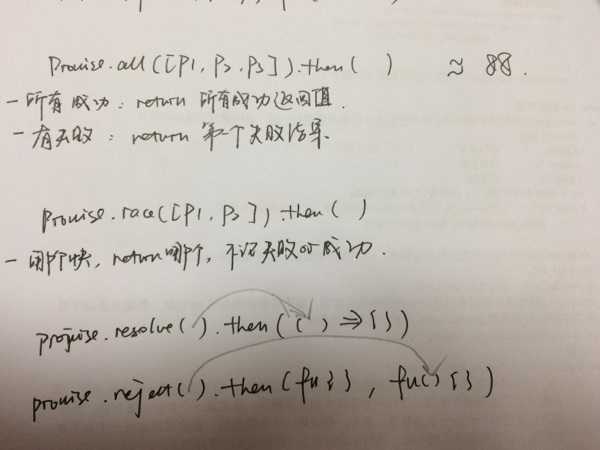 Promise.all([P1, P2, P3]).then( ) ≈ &&.
- 所有成功: return 所有成功返回值.
- 有失败: return 第一个失败结果.
Promise.race([P1, P2]).then( )
- 哪个快, return哪个, 不论失败or成功.
promise.resolve( ).then(( ) => { })
promise.reject( ).then(fn{ }, fn( ){ })